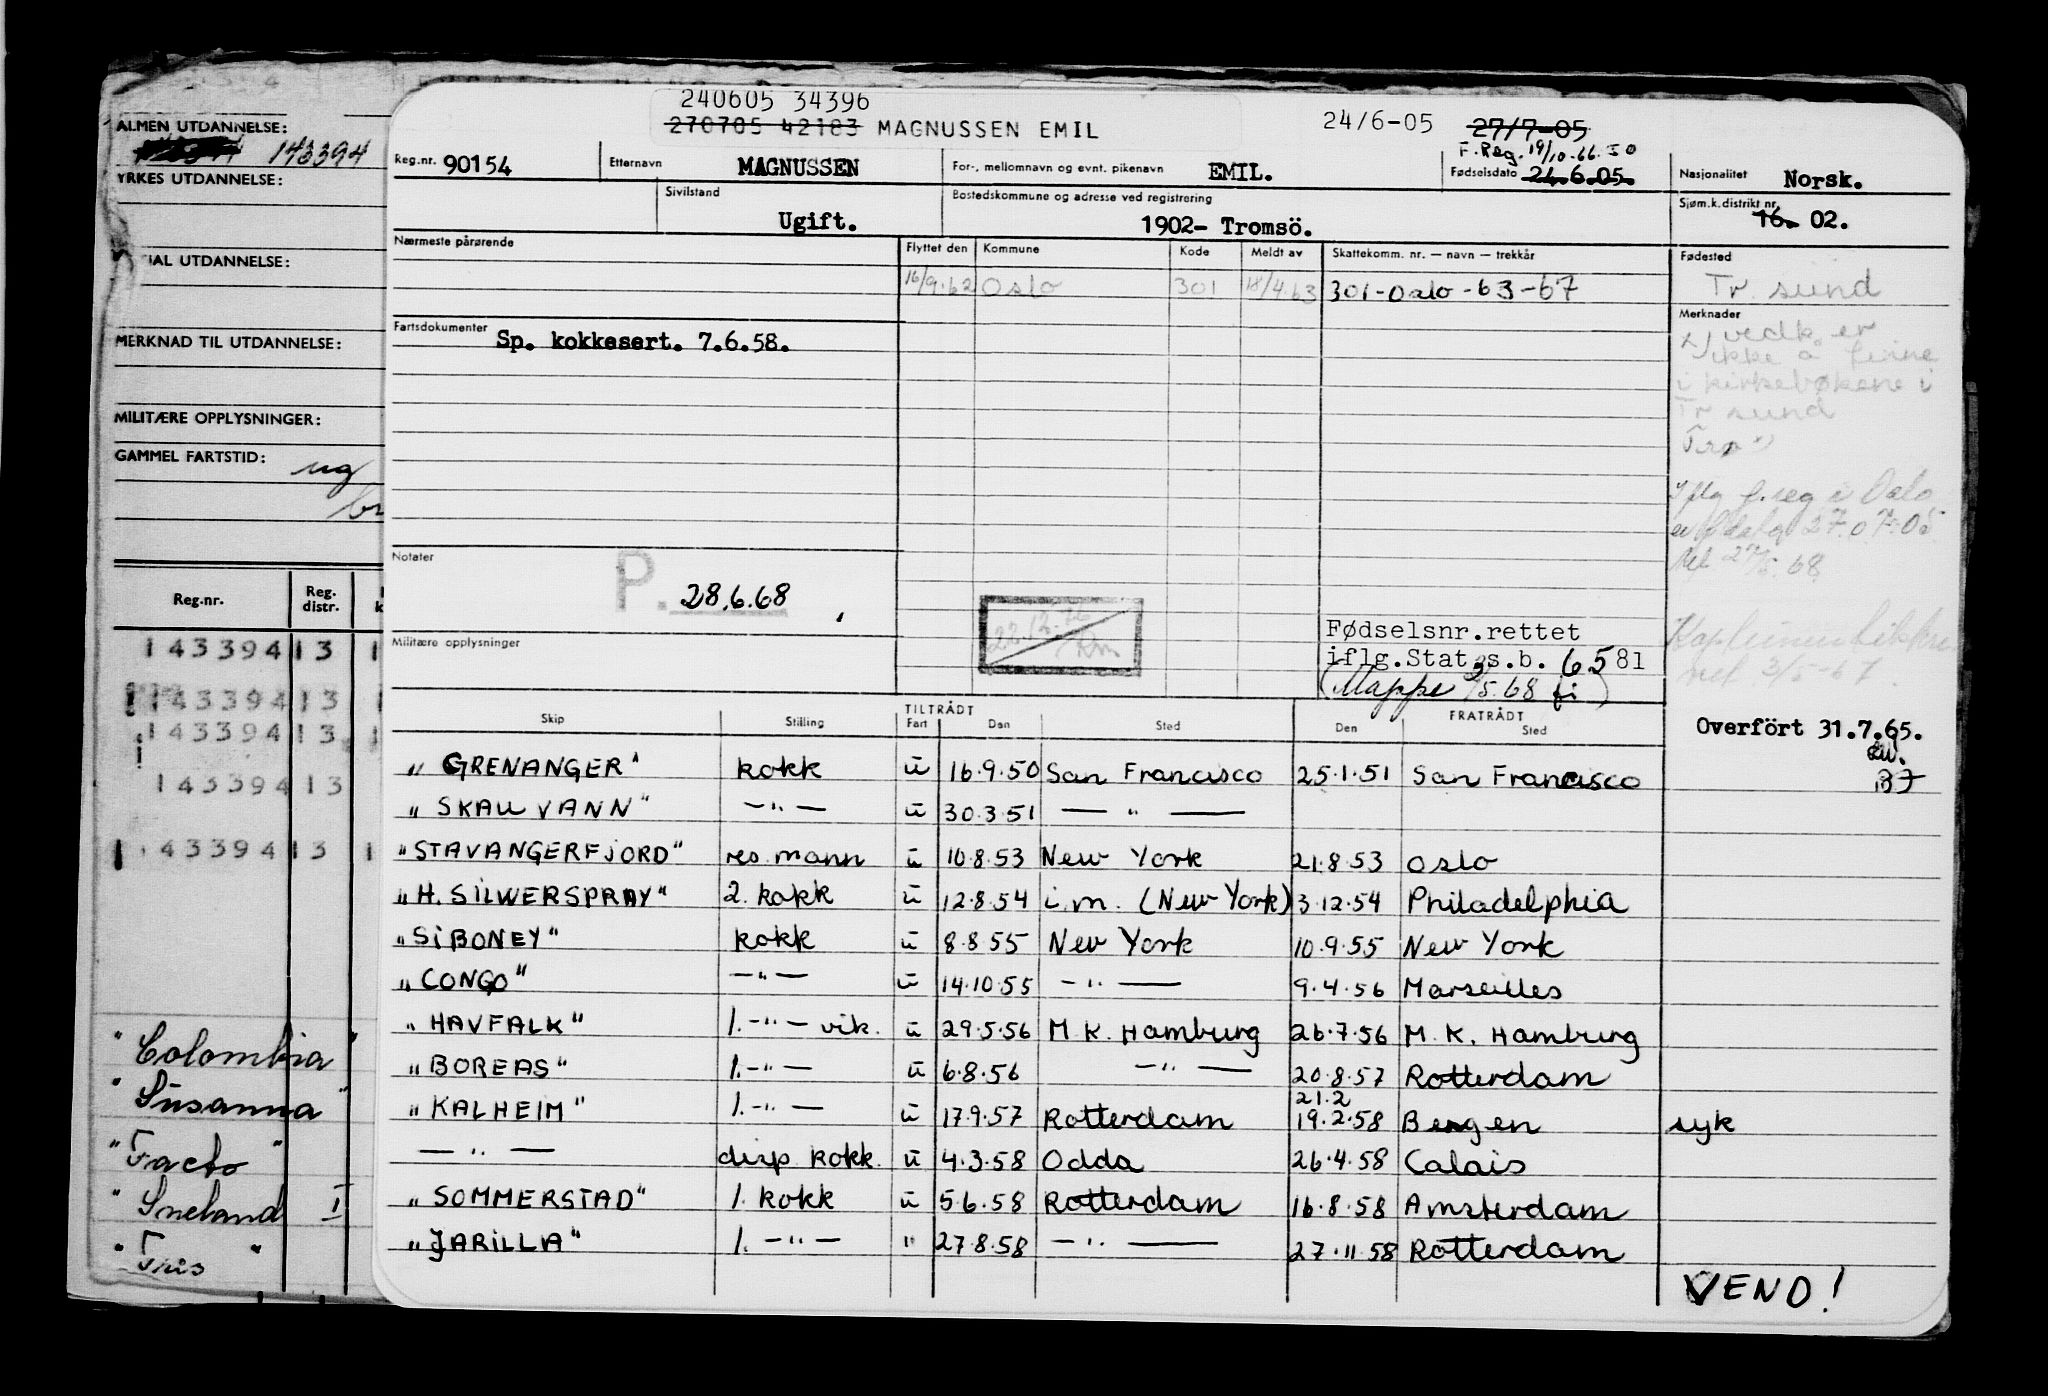 ALMEN UTDANNELSE:
143394
YRKES UTDANNELSE:
IAL UTDANNELSE:
MERKNAD TIL UTDANNELSE:
MILITÆRE OPPLYSNINGER:
GAMMEL FARTSTID:
ug
Reg.nr. Reg. distr.
143394 13 1
143394 13
143394 13
143394 13
43394 13 1
"Colombia"
"Susanna"
"Facto"
"Sneland I
"Tris"
240605 34396
270705 42183 MAGNUSSEN EMIL
24/6-05 27/7-05
F. Reg. 19/10-66. SO
Reg.nr. 90154 Etternavn MAGNUSSEN For-, mellomnavn og evnt. pikenavn EMIL. Fødselsdato 24.6.05. Nasjonalitet Norsk.
Sivilstand Ugift. Bostedskommune og adresse ved registrering 1902- Tromsö. Sjøm.k.distrikt nr. 16. 02.
Nærmeste pårørende Flyttet den Kommune Kode Meldt av Skattekomm. nr. — navn — trekkår Fødested
16/9.62 Oslo 301 18/4.63 301-Oslo-63-67 Tr. sund
Fartsdokumenter Sp. kokkesert. 7.6.58. Merknader
vedk. er
ikke å finne
i kirkebøkene i
Tr sund
Iflg f.reg i Oslo
er 27.07.05
28.6.68
Notater P. 28.6.68
22.12.76
Fødselsnr.rettet
iflg.Stat.s.b. 6581
(Mappe 3/5.68 fi)
Militære opplysninger
3/5-67
Skip Stilling TILTRÅDT Fart Den Sted FRATRÅDT Den Sted
Overfört 31.7.65.
"GRENANGER" kokk u 16.9.50 San Francisco 25.1.51 San Francisco
"SKAUVANN" —"— u 30.3.51 —"—
"STAVANGERFJORD" res. mann u 10.8.53 New York 21.8.53 Oslo
"H. SILWERSPRAY" 2. kokk u 12.8.54 i.m. (New York) 3.12.54 Philadelphia
"SIBONEY" kokk u 8.8.55 New York 10.9.55 New York
"CONGO" —"— u 14.10.55 —"— 9.4.56 Marseilles
"HAVFALK" 1.—"— vik. u 29.5.56 M.K. Hamburg 26.7.56 M.K. Hamburg
"BOREAS" 1.—"— u 6.8.56 —"— 20.8.57 Rotterdam
21.2
"KALHEIM" 1.—"— u 17.9.57 Rotterdam 19.2.58 Bergen syk
—"— disp kokk. u 4.3.58 Odda 26.4.58 Calais
"SOMMERSTAD" 1. kokk u 5.6.58 Rotterdam 16.8.58 Amsterdam
"JARILLA" 1.—"— " 27.8.58 —"— 27.11.58 Rotterdam
VEND!